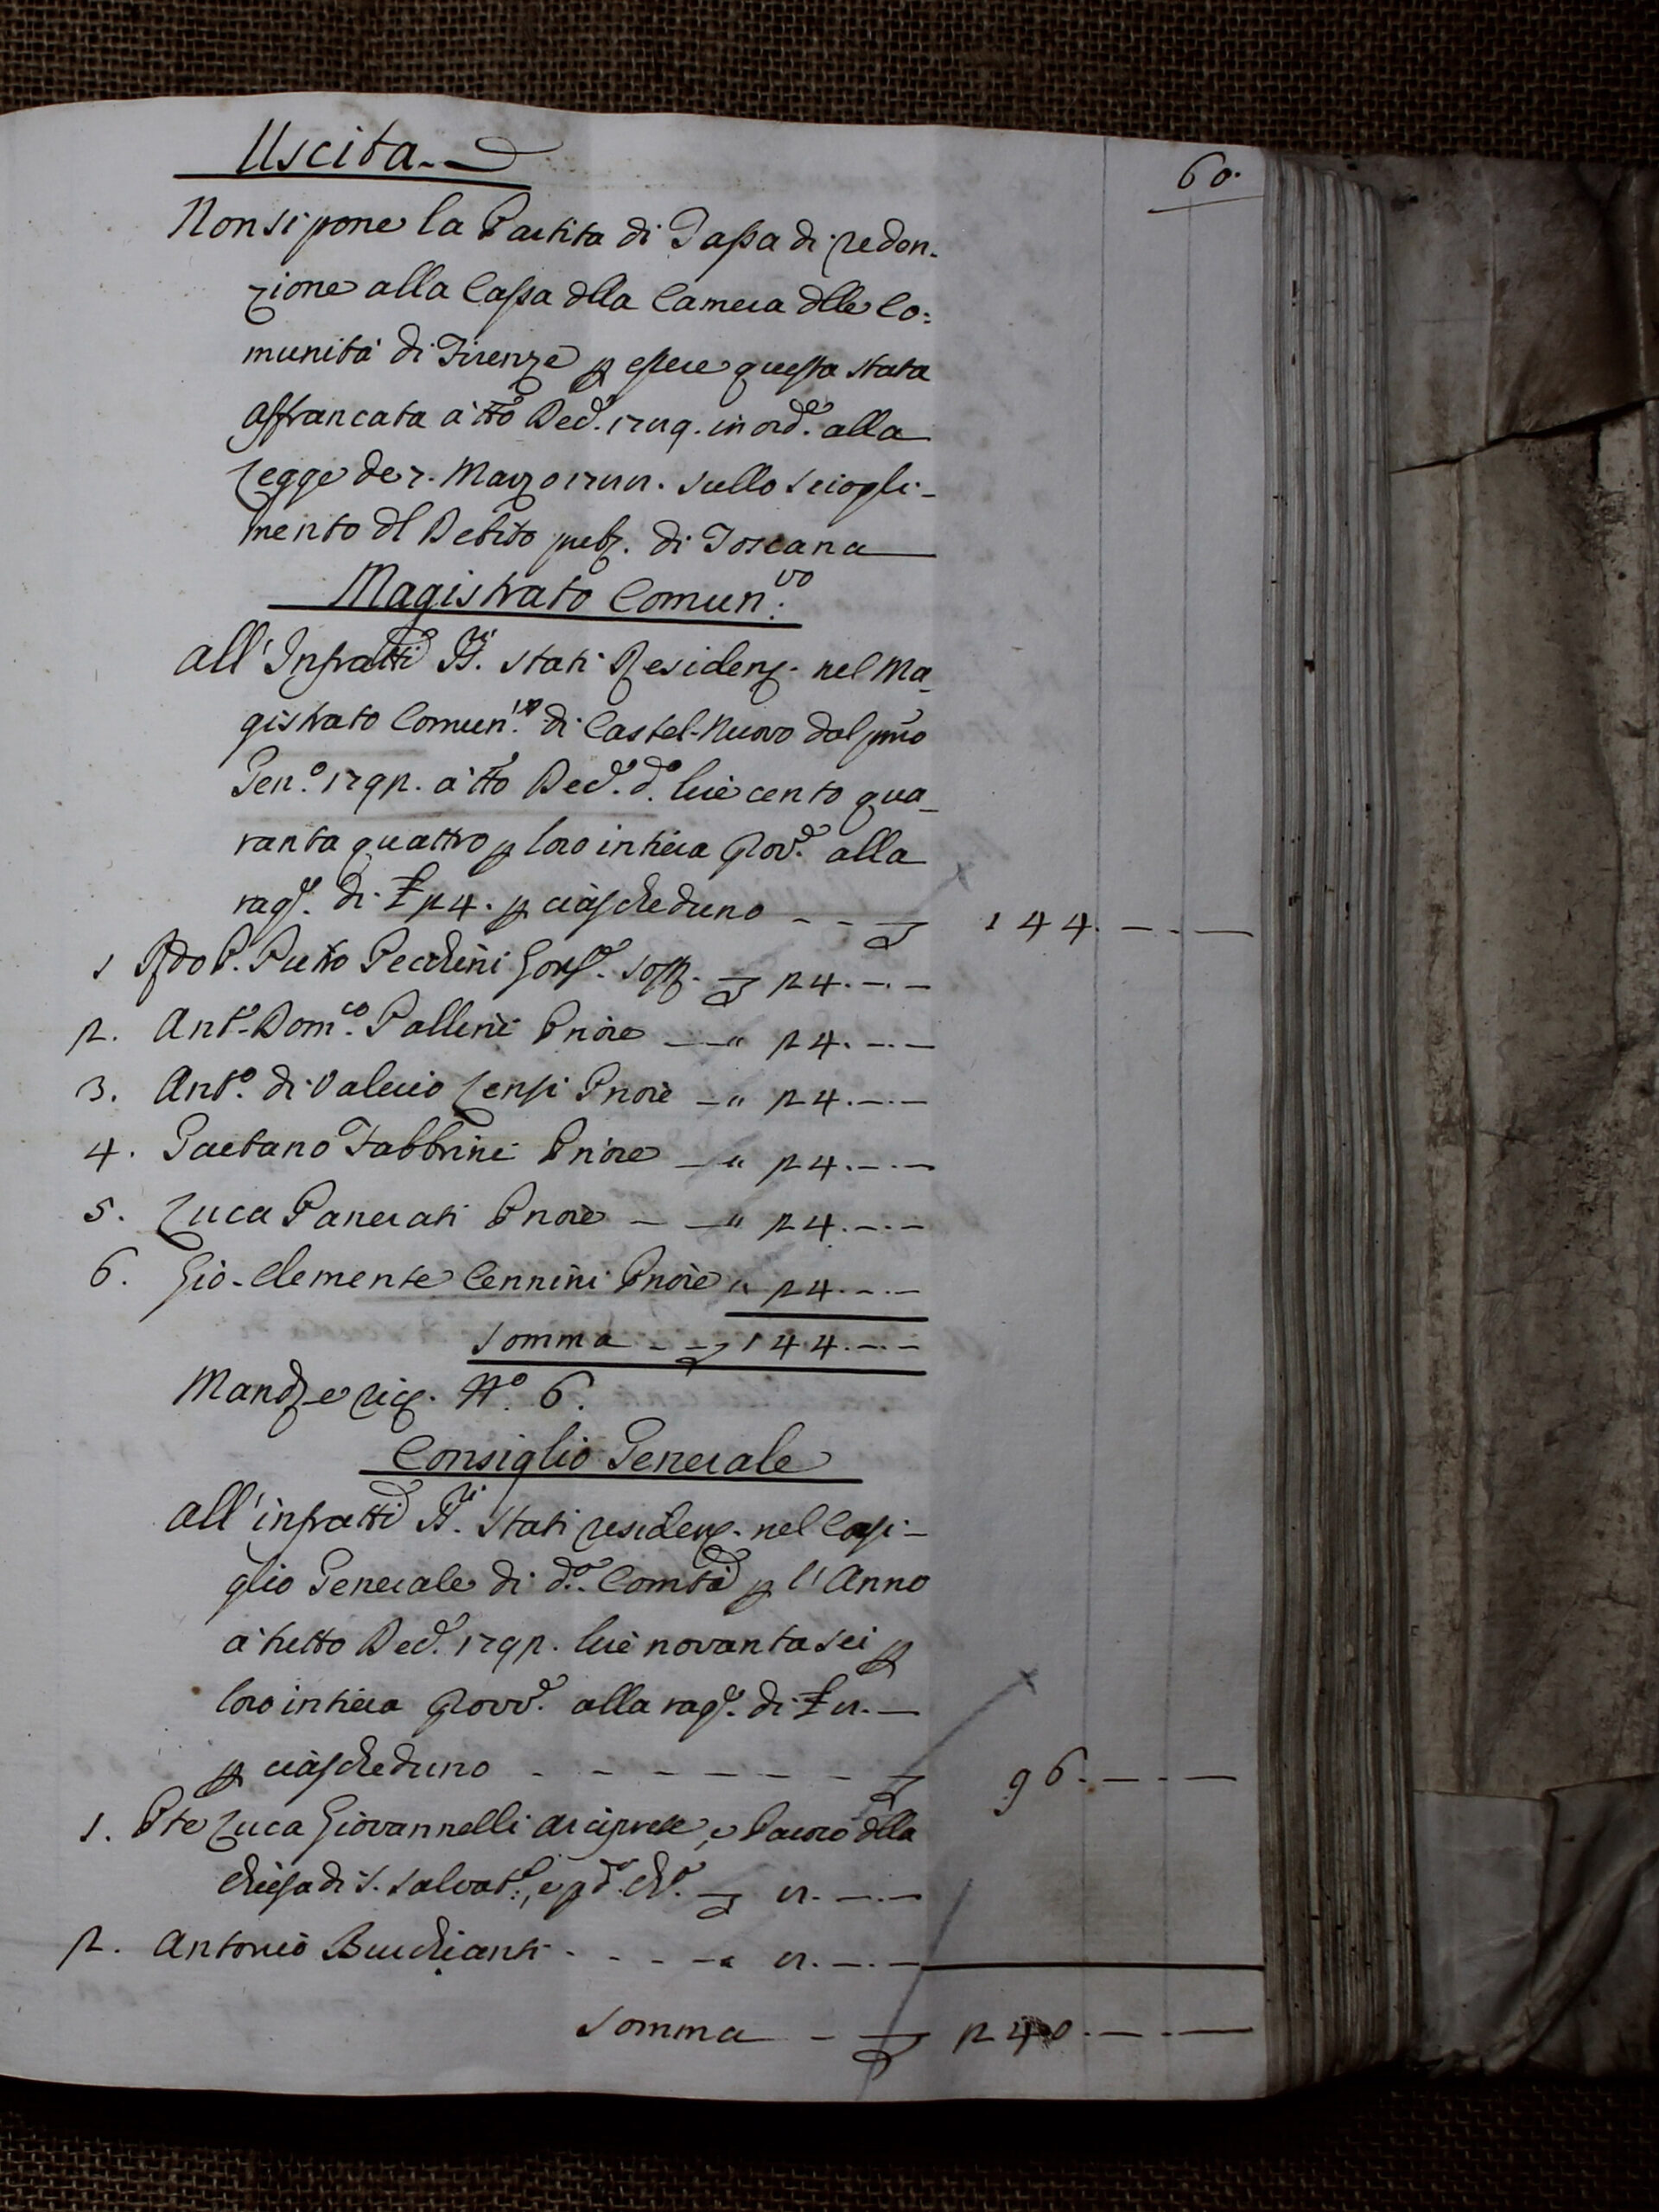 Uscita
60.
Non si pone la Partita di Tassa di reden-
zione alla Cassa dlla Camera dlle Co:
munità di Firenze p essere questa stata
affrancata a tto Dec.e 1789. in ord.e alla
Legge de 7. Marzo 1788. sullo sciogli-
mento dl Debito pub. di Toscana
Magistrato Comun.vo
all' Infratti SS.ri stati Residenz. nel Ma-
gistrato Comun.vo di Castel-Nuovo dal pmo
Gen.o 1792. a tto Dec.e d.o lire cento qua-
ranta quattro p loro intiera Prov.e alla
rag.e di £ 24. p ciascheduno 144. — . —
1 Pietro Pecchini Gonf.e 24. — . —
2. Ant.o Dom.co Pallini Priore " 24. — . —
3. Ant.o di Valerio Censi Priore " 24. — . —
4. Gaetano Fabbrini Priore " 24. — . —
5. Luca Panerati Priore " 24. — . —
6. Gio-Clemente Cennini Priore " 24. — . —
Somma 144. — . —
Mand. e ric. N.o 6.
Consiglio Generale
all' infratti SS.ri Stati residenz. nel Consi-
glio Generale di d.a Comtà p l' Anno
a tutto Dec.e 1792. lire novanta sei p
loro intiera Provv.e alla rag.e di £ 8. —
p ciascheduno 96. — . —
1. Pte Luca Giovannelli Arciprete, e Paroco dlla
Chiesa di S. Salvat.e, e p d.a Ch.a 8. — . —
2. Antonio Burchianti " 8. — . —
Somma 240. — . —